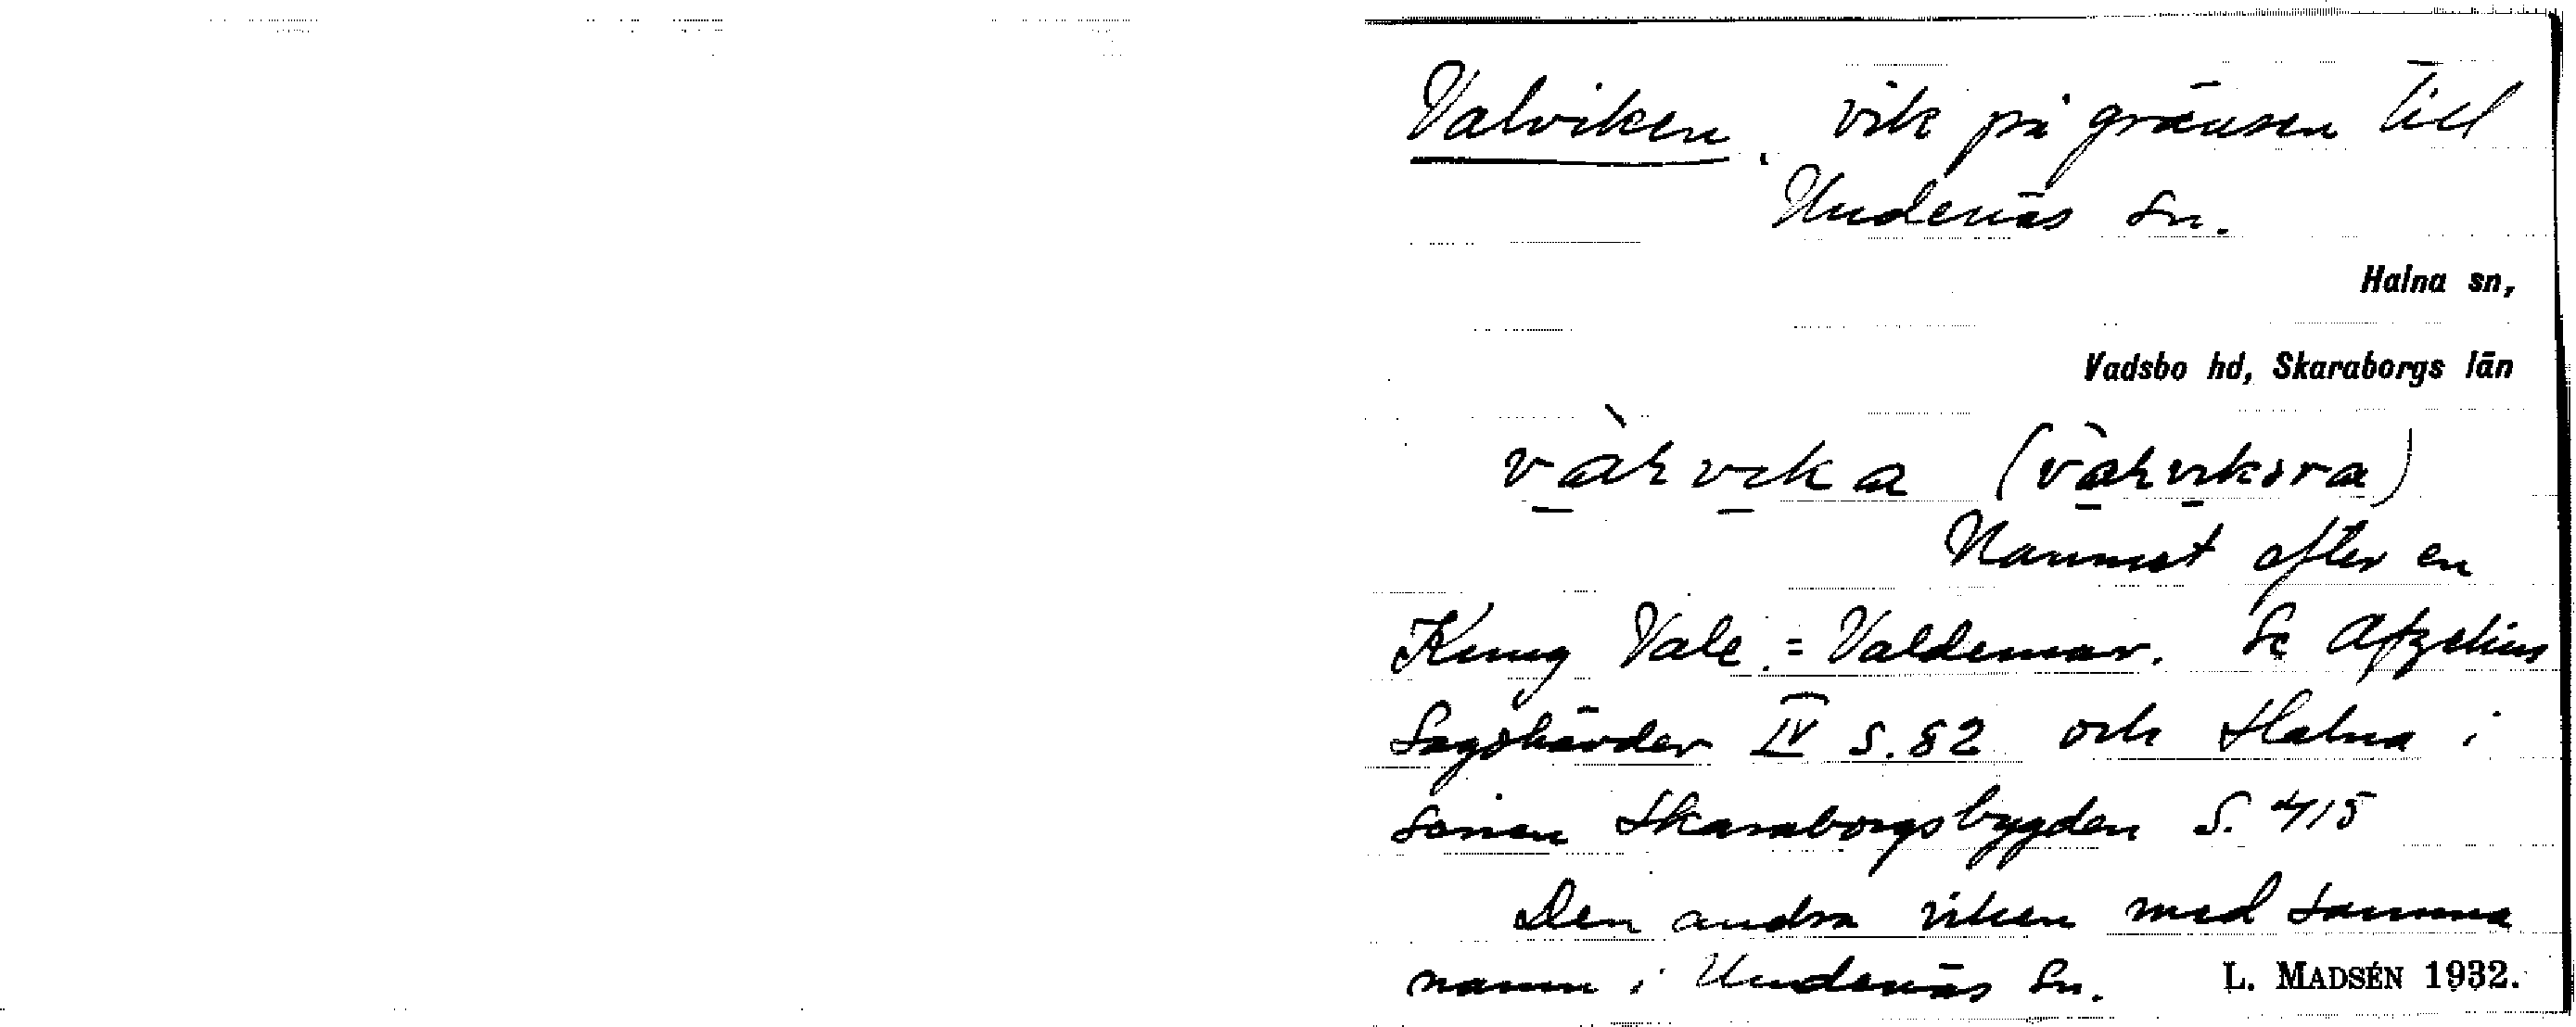 Valviken, vik på gränsen till
Undenäs sn.
Halna sn,
Vadsbo hd, Skaraborgs län
Namnet efter en
Kung Vale = Valdemar. Se Afzelius
Sagohävder IV s. 82 och Halna i
serien Skaraborgsbygden S. 415
Den andra viken med samma
namn i Undenäs Sn. L. MADSÉN 1932.